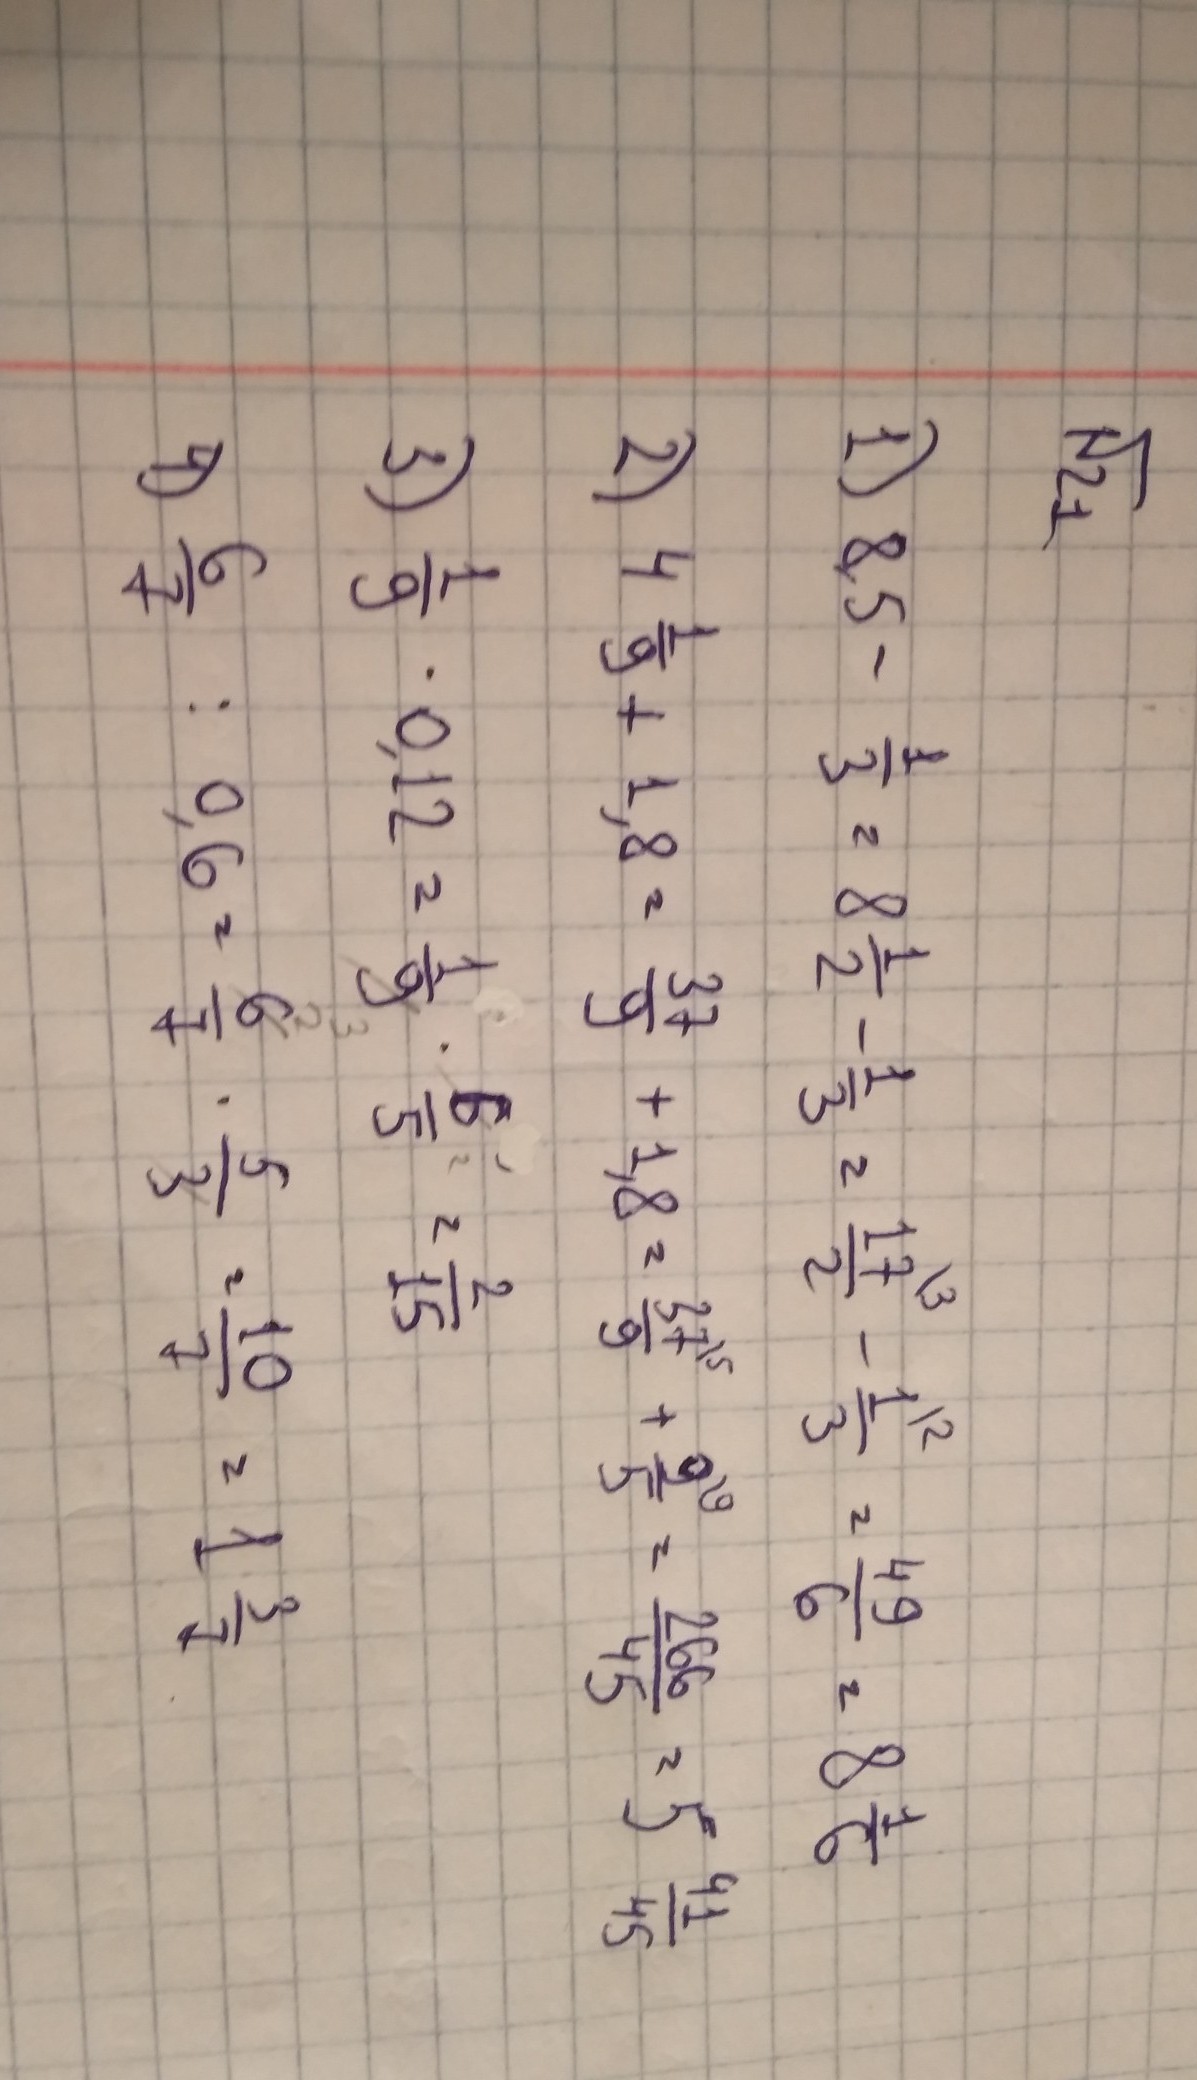 №21
1) 8,5 - 1/3 = 8 1/2 - 1/3 = 17/2 \3 - 1/3 \2 = 49/6 = 8 1/6
2) 4 1/9 + 1,8 = 37/9 + 1,8 = 37/9 \5 + 9/5 \9 = 266/45 = 5 41/45
3) 1/9 · 0,12 = 1/9 · 6/5 = = 2/15
4) 6/7 : 0,6 = 6/7 · 5/3 = 10/7 = 1 3/7